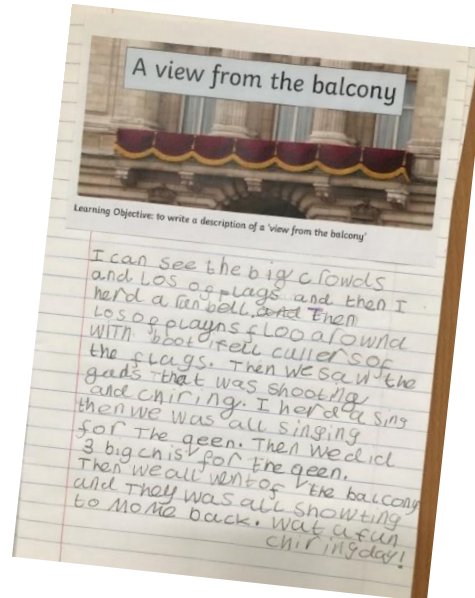 A view from the balcony
Learning Objective: to write a description of a 'view from the balcony'
I can see the big crowds
and Los og flags and then I
herd a ran bell. and Then
Los og playns floo arownd
with bootifell cullers of
the flags. Then we saw the
gads that was shooting
and chiring. I herd a sing
then we was all singing
for The qeen. Then we did
3 big chis for the qeen.
Then we all went of the balcony
and They was all showting
to MoMe back. wat a fun
chiring day!